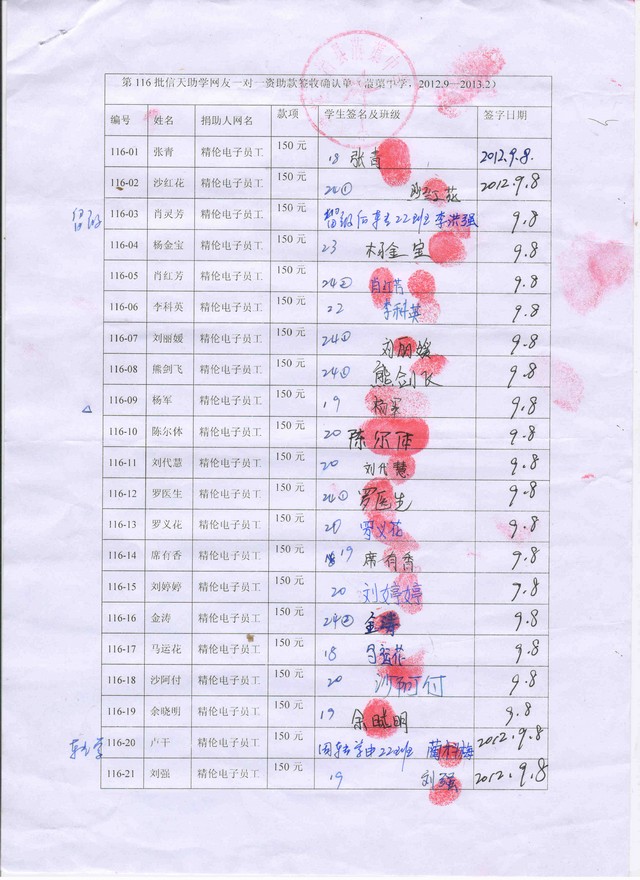 第 116 批信天助学网友一对一资助款签收确认单（蒗蕖中学，2012.9—2013.2）
编号 姓名 捐助人网名 款项 学生签名及班级 签字日期
116-01 张青 精伦电子员工 150 元 18 张青 2012.9.8.
116-02 沙红花 精伦电子员工 150 元 24① 沙红花 2012.9.8
116-03 肖灵芳 精伦电子员工 150 元 22班 李洪强 9.8
116-04 杨金宝 精伦电子员工 150 元 23 杨金宝 9.8
116-05 肖红芳 精伦电子员工 150 元 24② 肖红芳 9.8
116-06 李科英 精伦电子员工 150 元 22 李科英 9.8
116-07 刘丽媛 精伦电子员工 150 元 24② 刘丽媛 9.8
116-08 熊剑飞 精伦电子员工 150 元 24② 熊剑飞 9.8
116-09 杨军 精伦电子员工 150 元 19 杨军 9.8
116-10 陈尔体 精伦电子员工 150 元 20 陈尔体 9.8
116-11 刘代慧 精伦电子员工 150 元 20 刘代慧 9.8
116-12 罗医生 精伦电子员工 150 元 24① 罗医生 9.8
116-13 罗义花 精伦电子员工 150 元 20 罗义花 9.8
116-14 席有香 精伦电子员工 150 元 19 席有香 9.8
116-15 刘婷婷 精伦电子员工 150 元 20 刘婷婷 9.8
116-16 金涛 精伦电子员工 150 元 24② 金涛 9.8
116-17 马运花 精伦电子员工 150 元 18 马运花 9.8
116-18 沙阿付 精伦电子员工 150 元 20 沙阿付 9.8
116-19 余晓明 精伦电子员工 150 元 19 余晓明 9.8
转学 116-20 卢干 精伦电子员工 150 元 因转学由22班 2012.9.8
116-21 刘强 精伦电子员工 150 元 19 刘强 2012.9.8